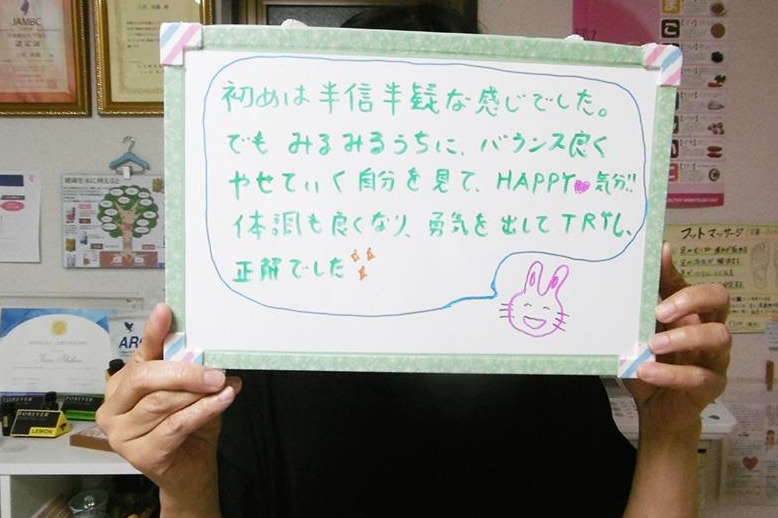 初めは半信半疑な感じでした。
でも みるみるうちに、バランス良く
やせていく自分を見て、HAPPY♥気分!!
体調も良くなり、勇気を出してTRYし、
正解でした
JAMBC
認定証
フットマッサージ
FOREVER
FOREVER
LEMON